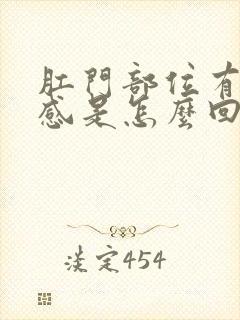 肛門部位有
感是怎麼回
淡定454